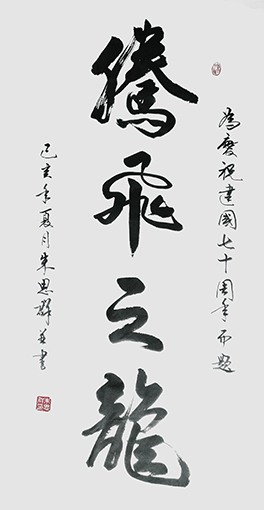 為慶祝建國七十周年而題
騰飛之龍
己亥年夏月朱恩群並書